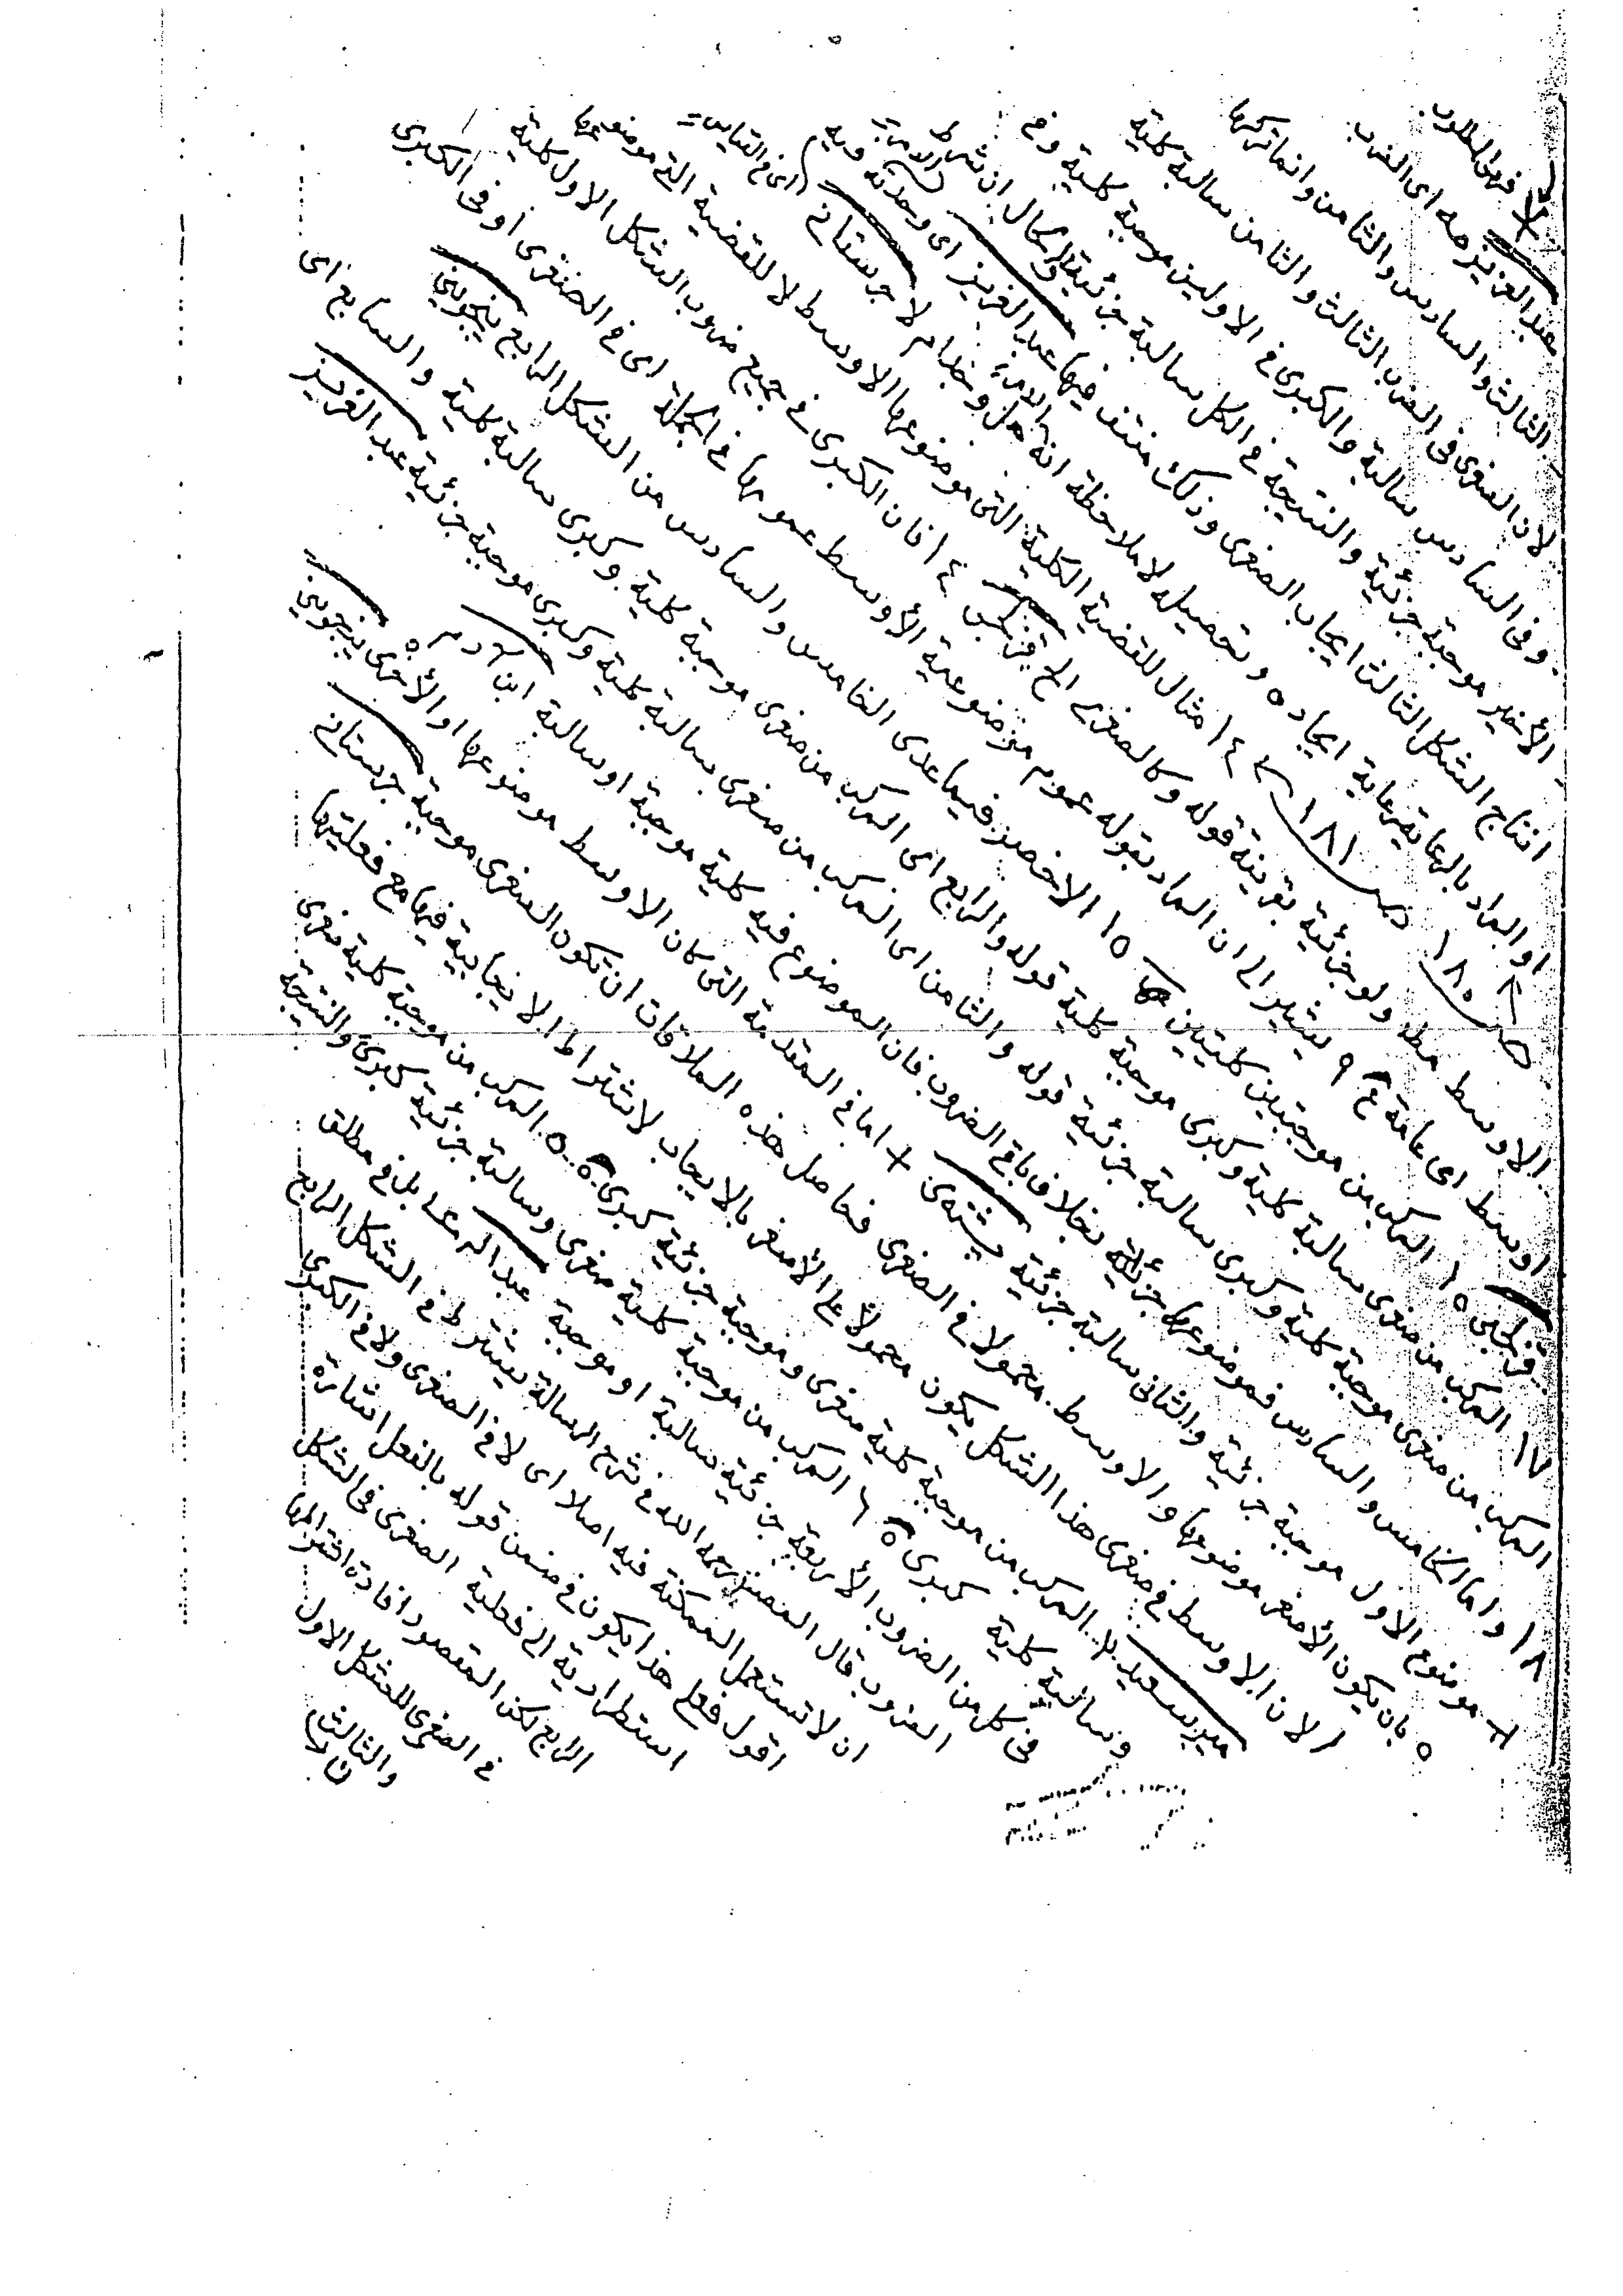 فهى المطلوب
عبد العزيز صه اى الضرب
الثالث والسادس والثامن وانما تركها
لان الصغرى فى الضرب الثالث والثامن سالبة كلية
وفى السادس سالبة والكبرى فى الاولين موجبة كلية وفى
الأخير موجبة جزئية والنتيجة فى الكل سالبة جزئية والحال ان شرط
انتاج الشكل الثالث ايجاب الصغرى وذلك منتف فيها عبد العزيز اى وحدته وفيه
او المراد بالرعاية رعاية ايجاده وتحصيله لا ملاحظة انه هل وجد ام لا جرستانى (اى فى القياس
ص١٨٠ ص١٨١ ١٤ مثال للقضية الكلية التى موضوعها الاوسط لا للقضية التى موضوعها
الاوسط مطلقا ولو جزئية بقرينة قوله وكالصغرى الخ قزلجى ١٤ فان الكبرى فى جميع ضروب الشكل الاول كلية
اوسط اى عامة ع ٩ يشير الى ان المراد بقوله عموم موضوعية الأوسط عمومها فى الجملة اى فى الصغرى أو فى الكبرى
قزلجى ١٥ المركب من موجبتين كليتين ١٥ الاخصر فيما عدى الخامس والسادس من الشكل الرابع ينجوينى
١٧ المركب من صغرى سالبة كلية وكبرى موجبة كلية قوله والرابع اى المركب من صغرى موجبة كلية وكبرى سالبة كلية والسابع اى
المركب من صغرى موجبة كلية وكبرى سالبة جزئية قوله والثامن اى المركب من صغرى سالبة كلية وكبرى موجبة جزئية عبد العزيز
١٨ واما الخامس والسادس فموضوعها جزئية بخلاف باقى الضروب فان الموضوع فيه كلية موجبة او سالبة ابن آدم
موضوع الاول موجبة جزئية والثانى سالبة جزئية + اما فى المقدمة التى كان الاوسط موضوعها او الأخرى ينجوينى
٥ بان يكون الأصغر موضوعها والاوسط محمولا فى الصغرى فحاصل هذه الملاقات ان تكون الصغرى موجبة جرستانى
لان الاوسط فى صغرى هذا الشكل يكون محمولا على الأصغر بالايجاب لاشتراط الايجابية فيها مع فعليتها
ميرسعيد المركب من موجبة كلية صغرى وموجبة جزئية كبرى ٥ المركب من موجبة كلية صغرى
وسالبة كلية كبرى ٦ المركب من موجبة كلية صغرى وسالبة جزئية كبرى والنتيجة
فى كل من الضروب الأربعة جزئية سالبة او موجبة بل فى مطلق
الضروب قال المصنف رحمه الله فى شرح الرسالة يشترط فى الشكل الرابع
ان لا تستعمل الممكنة فيه اصلا اى لا فى الصغرى ولا فى الكبرى
اقول فعلى هذا يكون فى ضمن قوله بالفعل اشارة
استطرادية الى فعلية الصغرى فى الشكل
الرابع لكن المقصود افادة اشتراطها
فى الصغرى للشكل الاول
والثالث